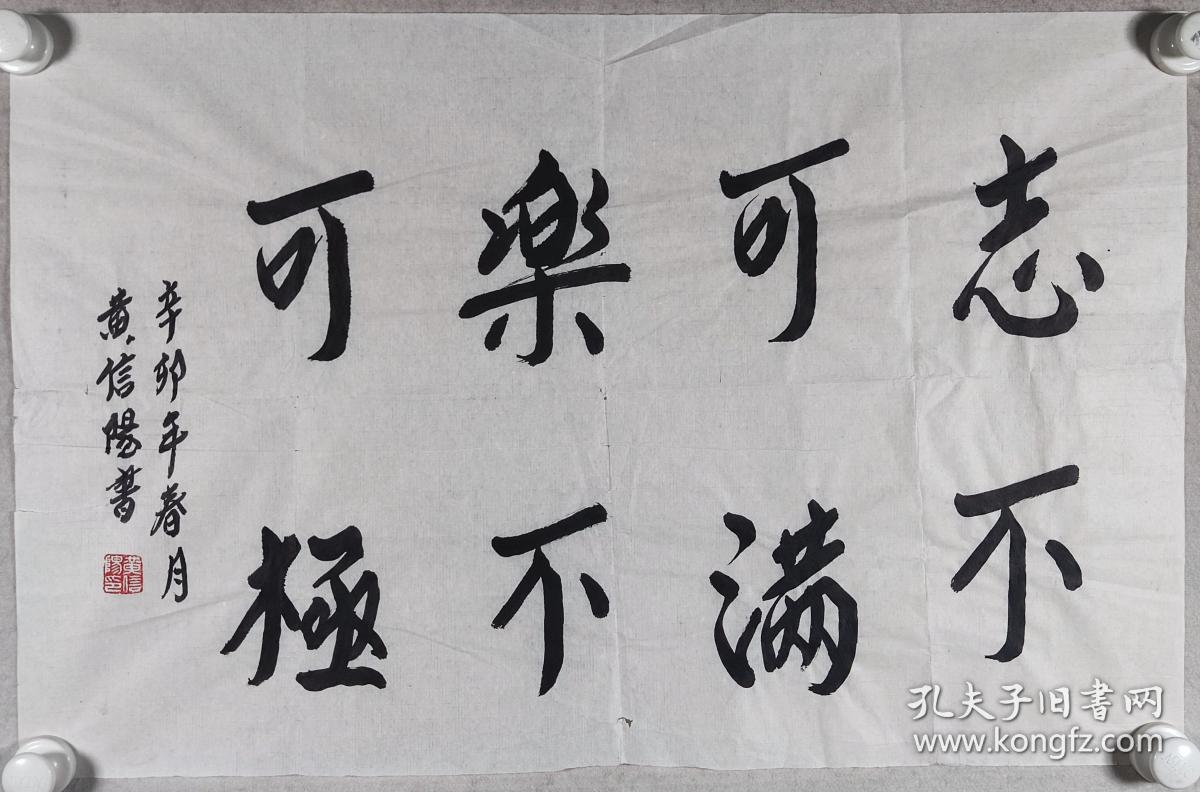 志不
可滿
樂不
可極
辛卯年春月
黄信陽書
黄信陽印
孔夫子旧書网
www.kongfz.com